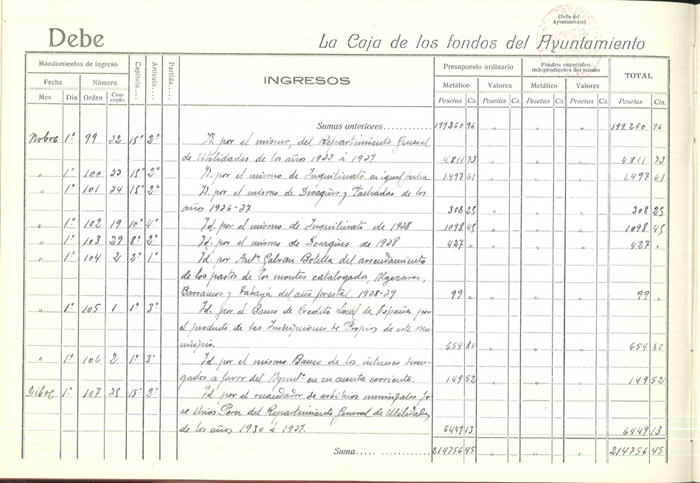 (Sello del Ayuntamiento)
Debe
La Caja de los fondos del Ayuntamiento
Mandamientos de ingreso
Fecha Número
Mes Día Orden Concepto Capítulo.... Artículo.... Partida....
INGRESOS
Presupuesto ordinario Fondos especiales independientes del mismo TOTAL
Metálico Valores Metálico Valores
Pesetas Cs. Pesetas Cs. Pesetas Cs. Pesetas Cs. Pesetas Cts.
Sumas anteriores 199260 96 " " " 199.260 96
Nobre 1º 99 22 15º 2º Id. por el mismo, del Repartimiento General
de Utilidades de los años 1922 á 1927 4.811 73 " " " 4811 73
" 1º 100 23 15º 2º Id. por el mismo de Inquilinato en igual fecha 1.497 61 " " " 1.497 61
" 1º 101 24 15º 2º Id. por el mismo de Desagües y Fachadas de los
años 1926-27 308 25 " " " 308 25
" 1º 102 19 10º 4º Id. por el mismo de Inquilinato de 1928 1098 45 " " " 1098 45
" 1º 103 29 8º 2º Id. por el mismo de Desagües de 1928 427 " " " " 427 "
" 1º 104 2 2º 1º Id. por Antº Botella del arrendamiento
de los pastos de los montes catalogados,
Barrancos y del año forestal 1928-29 99 " " " " 99 "
" 1º 105 1 1º 3º Id. por el Banco de Credito Local de España por
el producto de las Inscripciones de Propios de este Mu-
nicipio. 654 80 " " " 654 80
" 1º 106 2 1º 3º Id. por el mismo Banco de los intereses deven-
gados a favor del Ayuntº en su cuenta corriente. 149 52 " " " 149 52
Dibre 1º 107 25 15º 2º Id. por el recaudador de arbitrios municipales Jo-
se del Repartimiento General de Utilidades
de los años 1930 á 1927. 6449 13 " " " 6449 13
Suma 214756 45 " " " 214756 45